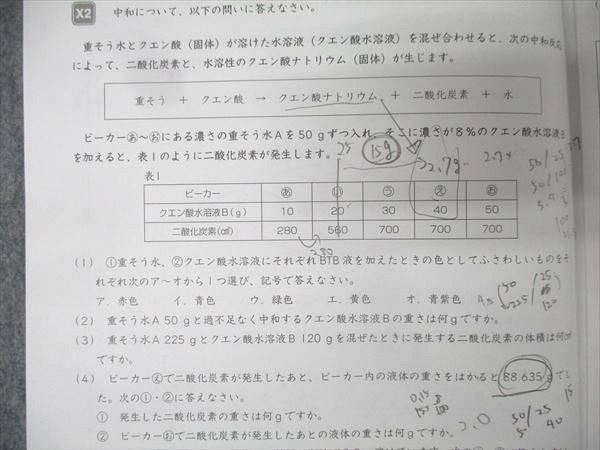 X2 中和について、以下の問いに答えなさい。
重そう水とクエン酸（固体）が溶けた水溶液（クエン酸水溶液）を混ぜ合わせると、次の中和反応
によって、二酸化炭素と、水溶性のクエン酸ナトリウム（固体）が生じます。
重そう ＋ クエン酸 → クエン酸ナトリウム ＋ 二酸化炭素 ＋ 水
ビーカーあ～おにある濃さの重そう水Aを50gずつ入れ、そこに濃さが8%のクエン酸水溶液B
を加えると、表1のように二酸化炭素が発生します。
25 15g 2.7g 2.7g
表1
ビーカー あ い う え お
クエン酸水溶液B(g) 10 20 30 40 50
二酸化炭素(cm³) 280 560 700 700 700
280
(1) ①重そう水、②クエン酸水溶液にそれぞれBTB液を加えたときの色としてふさわしいものをそ
れぞれ次のア～オから1つ選び、記号で答えなさい。
ア．赤色 イ．青色 ウ．緑色 エ．黄色 オ．青紫色
(2) 重そう水A 50gと過不足なく中和するクエン酸水溶液Bの重さは何gですか。
(3) 重そう水A 225gとクエン酸水溶液B 120gを混ぜたときに発生する二酸化炭素の体積は何cm³
ですか。
(4) ビーカーえで二酸化炭素が発生したあと、ビーカー内の液体の重さをはかると88.635gでし
た。次の①・②に答えなさい。
① 発生した二酸化炭素の重さは何gですか。
② ビーカーおで二酸化炭素が発生したあとの液体の重さは何gですか。